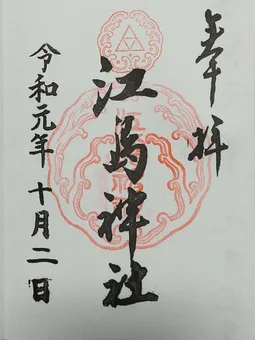 奉拝
江島神社
令和元年十月二日